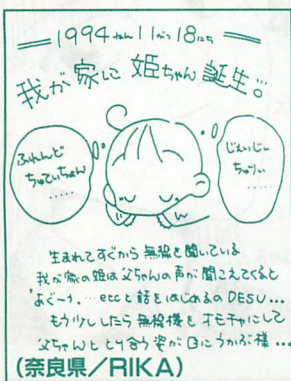 1994ねん11がつ18にち
我が家に姫ちゃん誕生!!
ふれんど
ちゅてぃちゃん
.....
じぇいじぃー
ちゅりぃ
.....
生まれてすぐから無線を聞いている
我が家の姫は父ちゃんの声が聞こえてくると
"あぐーっ....eccと話をはじめるのDESU...
もう少ししたら無線機をオモチャにして
父ちゃんととり合う姿が目にうかぶ様...
(奈良県/RIKA)